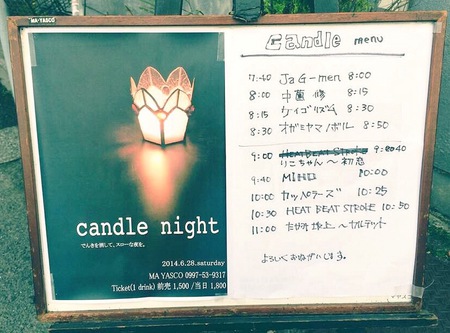 MA YASCO
candle night
でんきを消して、スローな夜を。
2014.6.28.saturday
MA YASCO 0997-53-9317
Ticket(1 drink) 前売 1,500 / 当日 1,800
Candle menu
7:40 JaG-men 8:00
8:00 中薗 修 8:15
8:15 ケイゴリズム 8:30
8:30 オガミヤマノボル 8:50
9:00 HEAT BEAT STROKE 9:2040
りこちゃん〜初恋
9:40 MIHO 10:00
10:00 カッペラーズ 10:25
10:30 HEAT BEAT STROKE 10:50
11:00 〜カルテット
よろしくおねがいします。